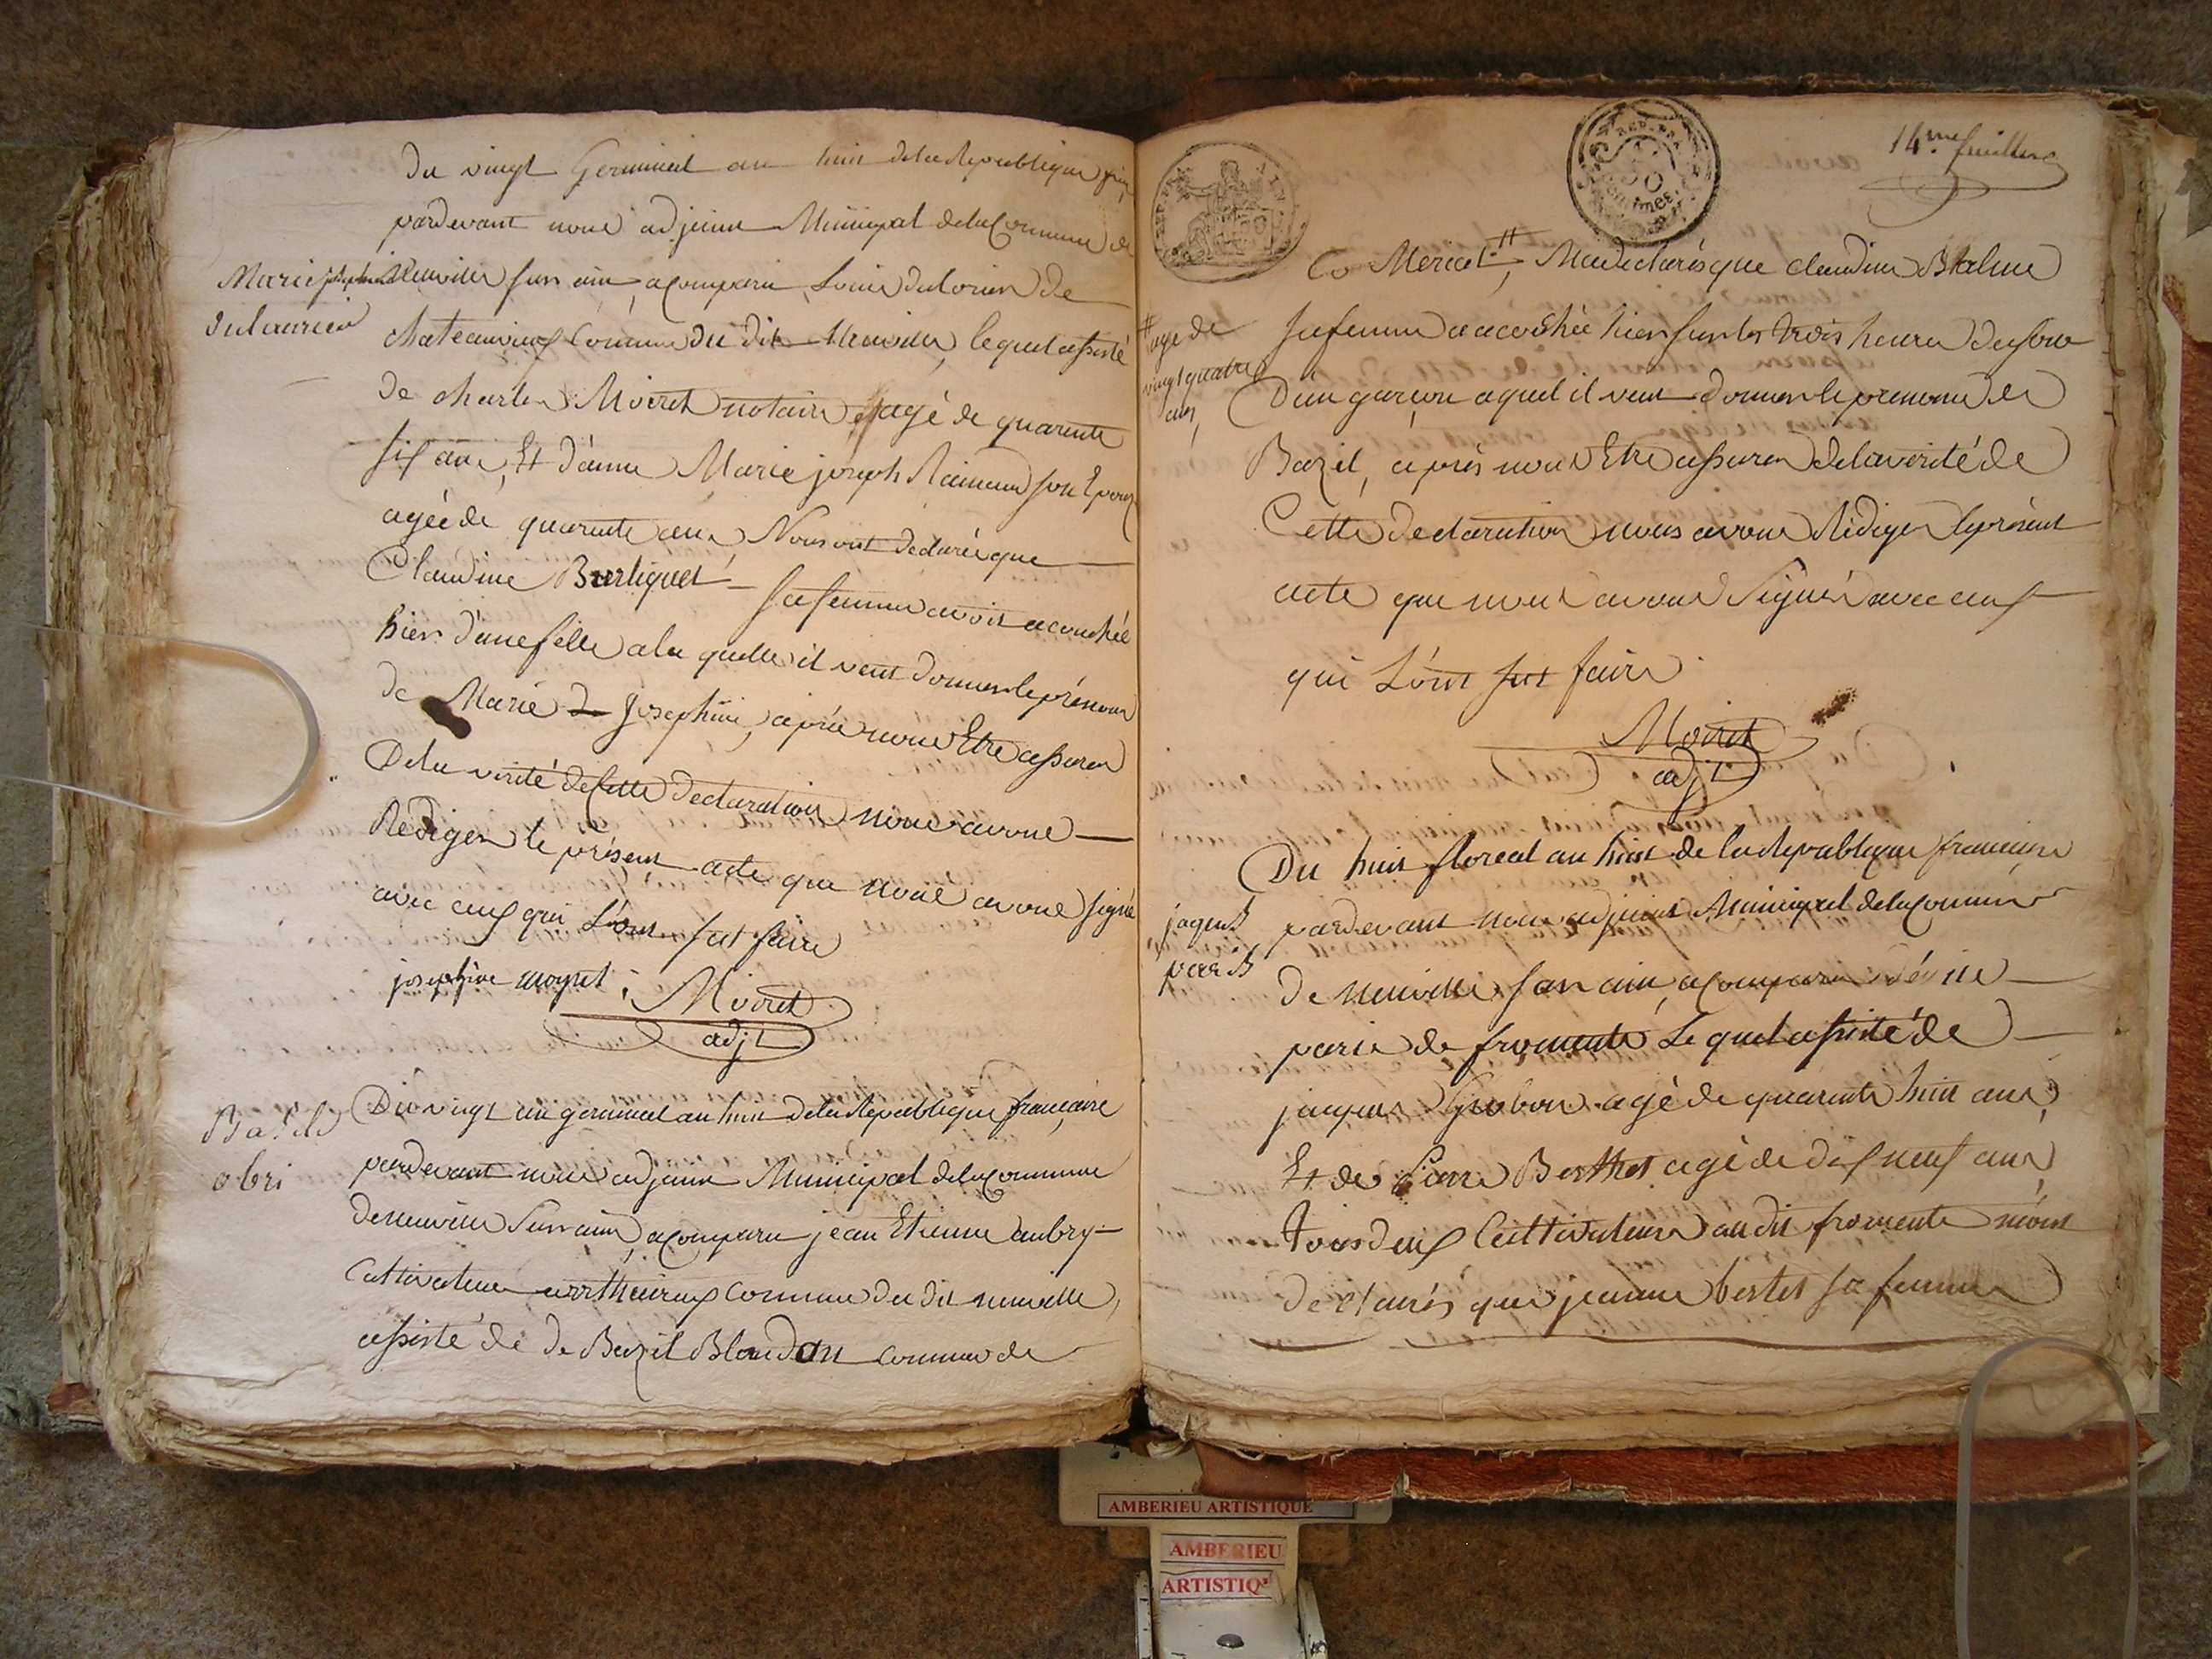 Du vingt Germinal an huit de la Republique
pardevant nous adjoint Municipal de la Commune de
Marie josephine
dulaurier
Neuville sur ain, a comparu Louis dulorier de
chateauvieux Commune du dit Neuville, lequel assisté
de charles Moiret notaire agé de quarente
six ans, Et d'anne Marie joseph son Epouse
agée de quarente ans, Nous ont declarés que
Claudine Burliquet sa femme avoit acouchée
hier d'une fille a la quelle il veut donner le prénom
de Marie Josephine, après nous Etre assurer
De la verité de Cette declaration nous avons
Rediger le présent acte que nous avons signé
avec ceux qui L'ont sut faire
josephine moyret Moiret
adjt
Bazile
obri
Du vingt un germinal an huit de la Republique francaise
pardevant nous adjoint Municipal de la Commune
de neuville Sur ain, a comparu jean Etienne aubry
Cultivateur Commune du dit neuville,
assisté de de Bazil Blondan commune de
14.me feuillet
Co Mericat # Ma declarés que claudine Balme
# age de
vingt quatre
ans,
sa femme a acouchée hier sur les trois heures du soir
D'un garçon a quel il veut donner le prenom de
Bazil, après nous Etre assurer de la verité de
Cette declaration nous avons Rediger le présent
acte que nous avons Signé avec ceux
qui L'ont sut faire
Moiret
adjt
Du huit floreal an huit de la Republique francaise
jaques
paris
pardevant nous adjoint Municipal de la Commune
de neuville sur ain, a comparu
paris de fromente Le quel assisté de
jaques agé de quarente huit ans,
Et de Pierre Berthet agé de dix neuf ans
tous deux Cultivateurs au dit fromente m'ont
declarés que jeanne bertet sa femme
AMBERIEU ARTISTIQUE
AMBERIEU
ARTISTIQ